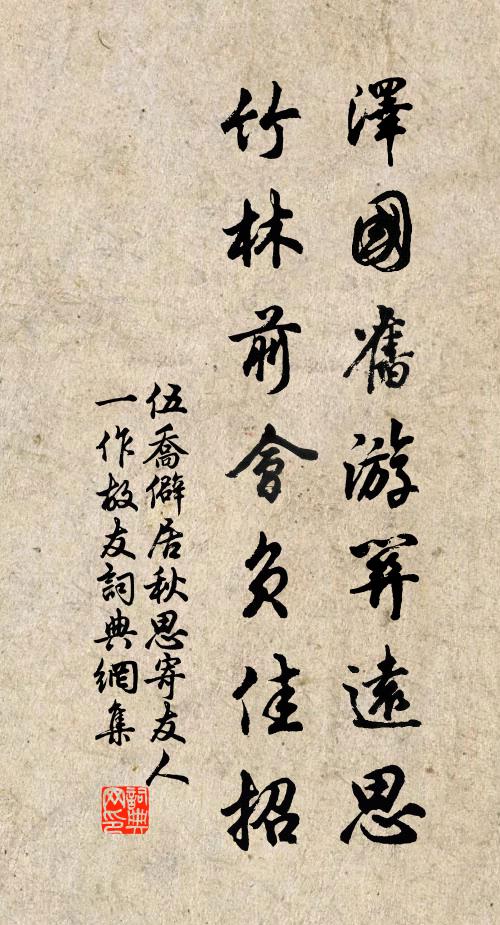 澤國舊游關遠思
竹林前會負佳招
伍喬僻居秋思寄友人
一作故友詞典網集
詞典
网印